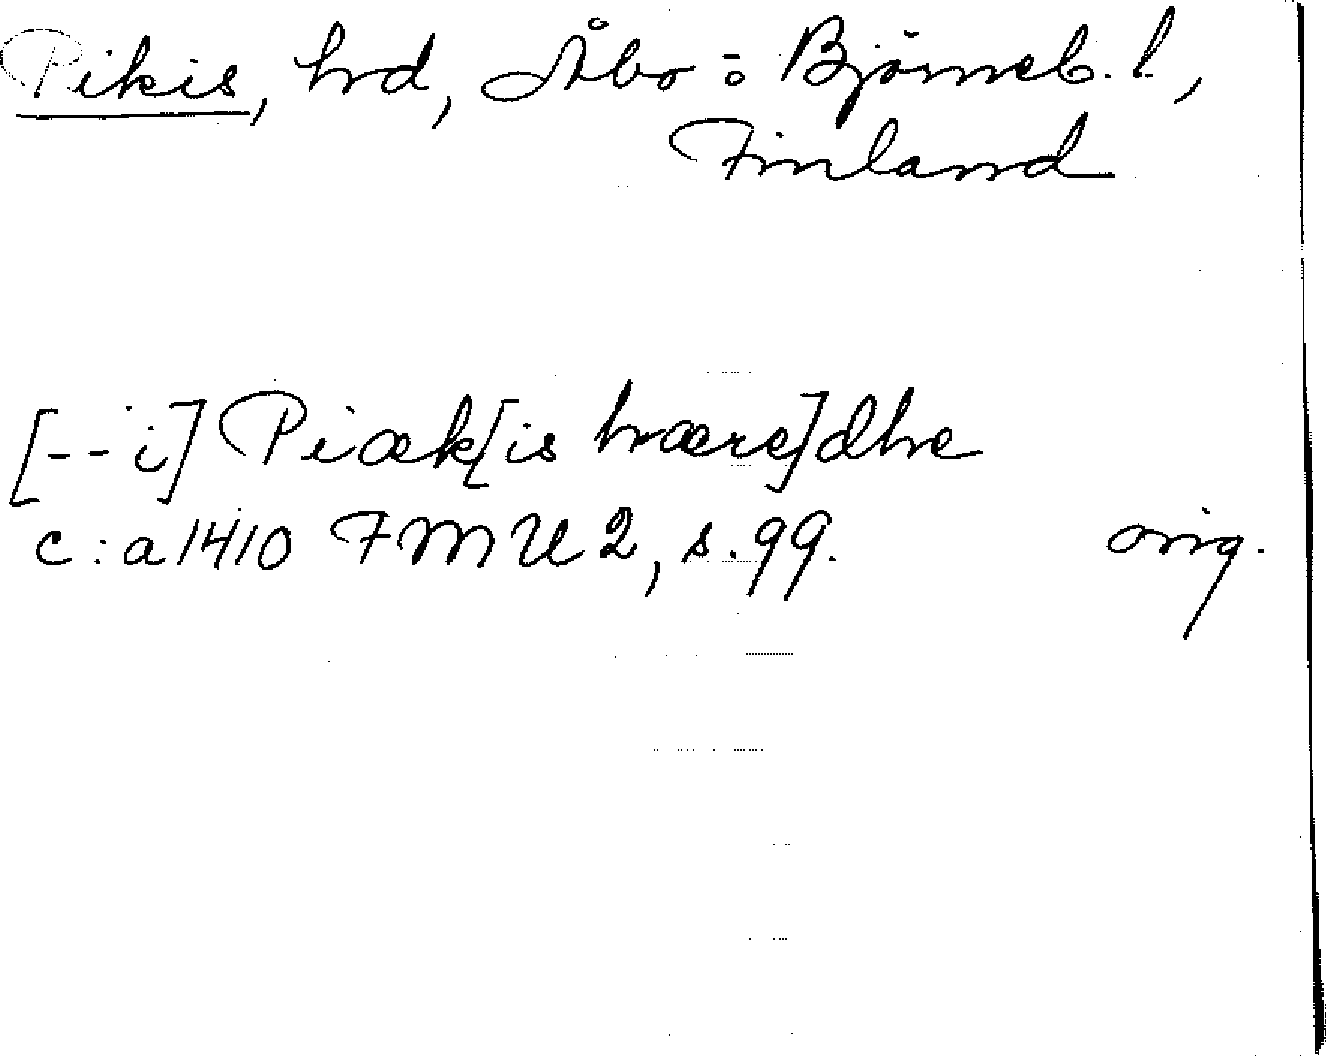 Pikis, hrd, Åbo = Björneb. l.,
Finland
[--i] Piæk[is hære]dhe
c:a 1410 FMU 2, s. 99. orig.